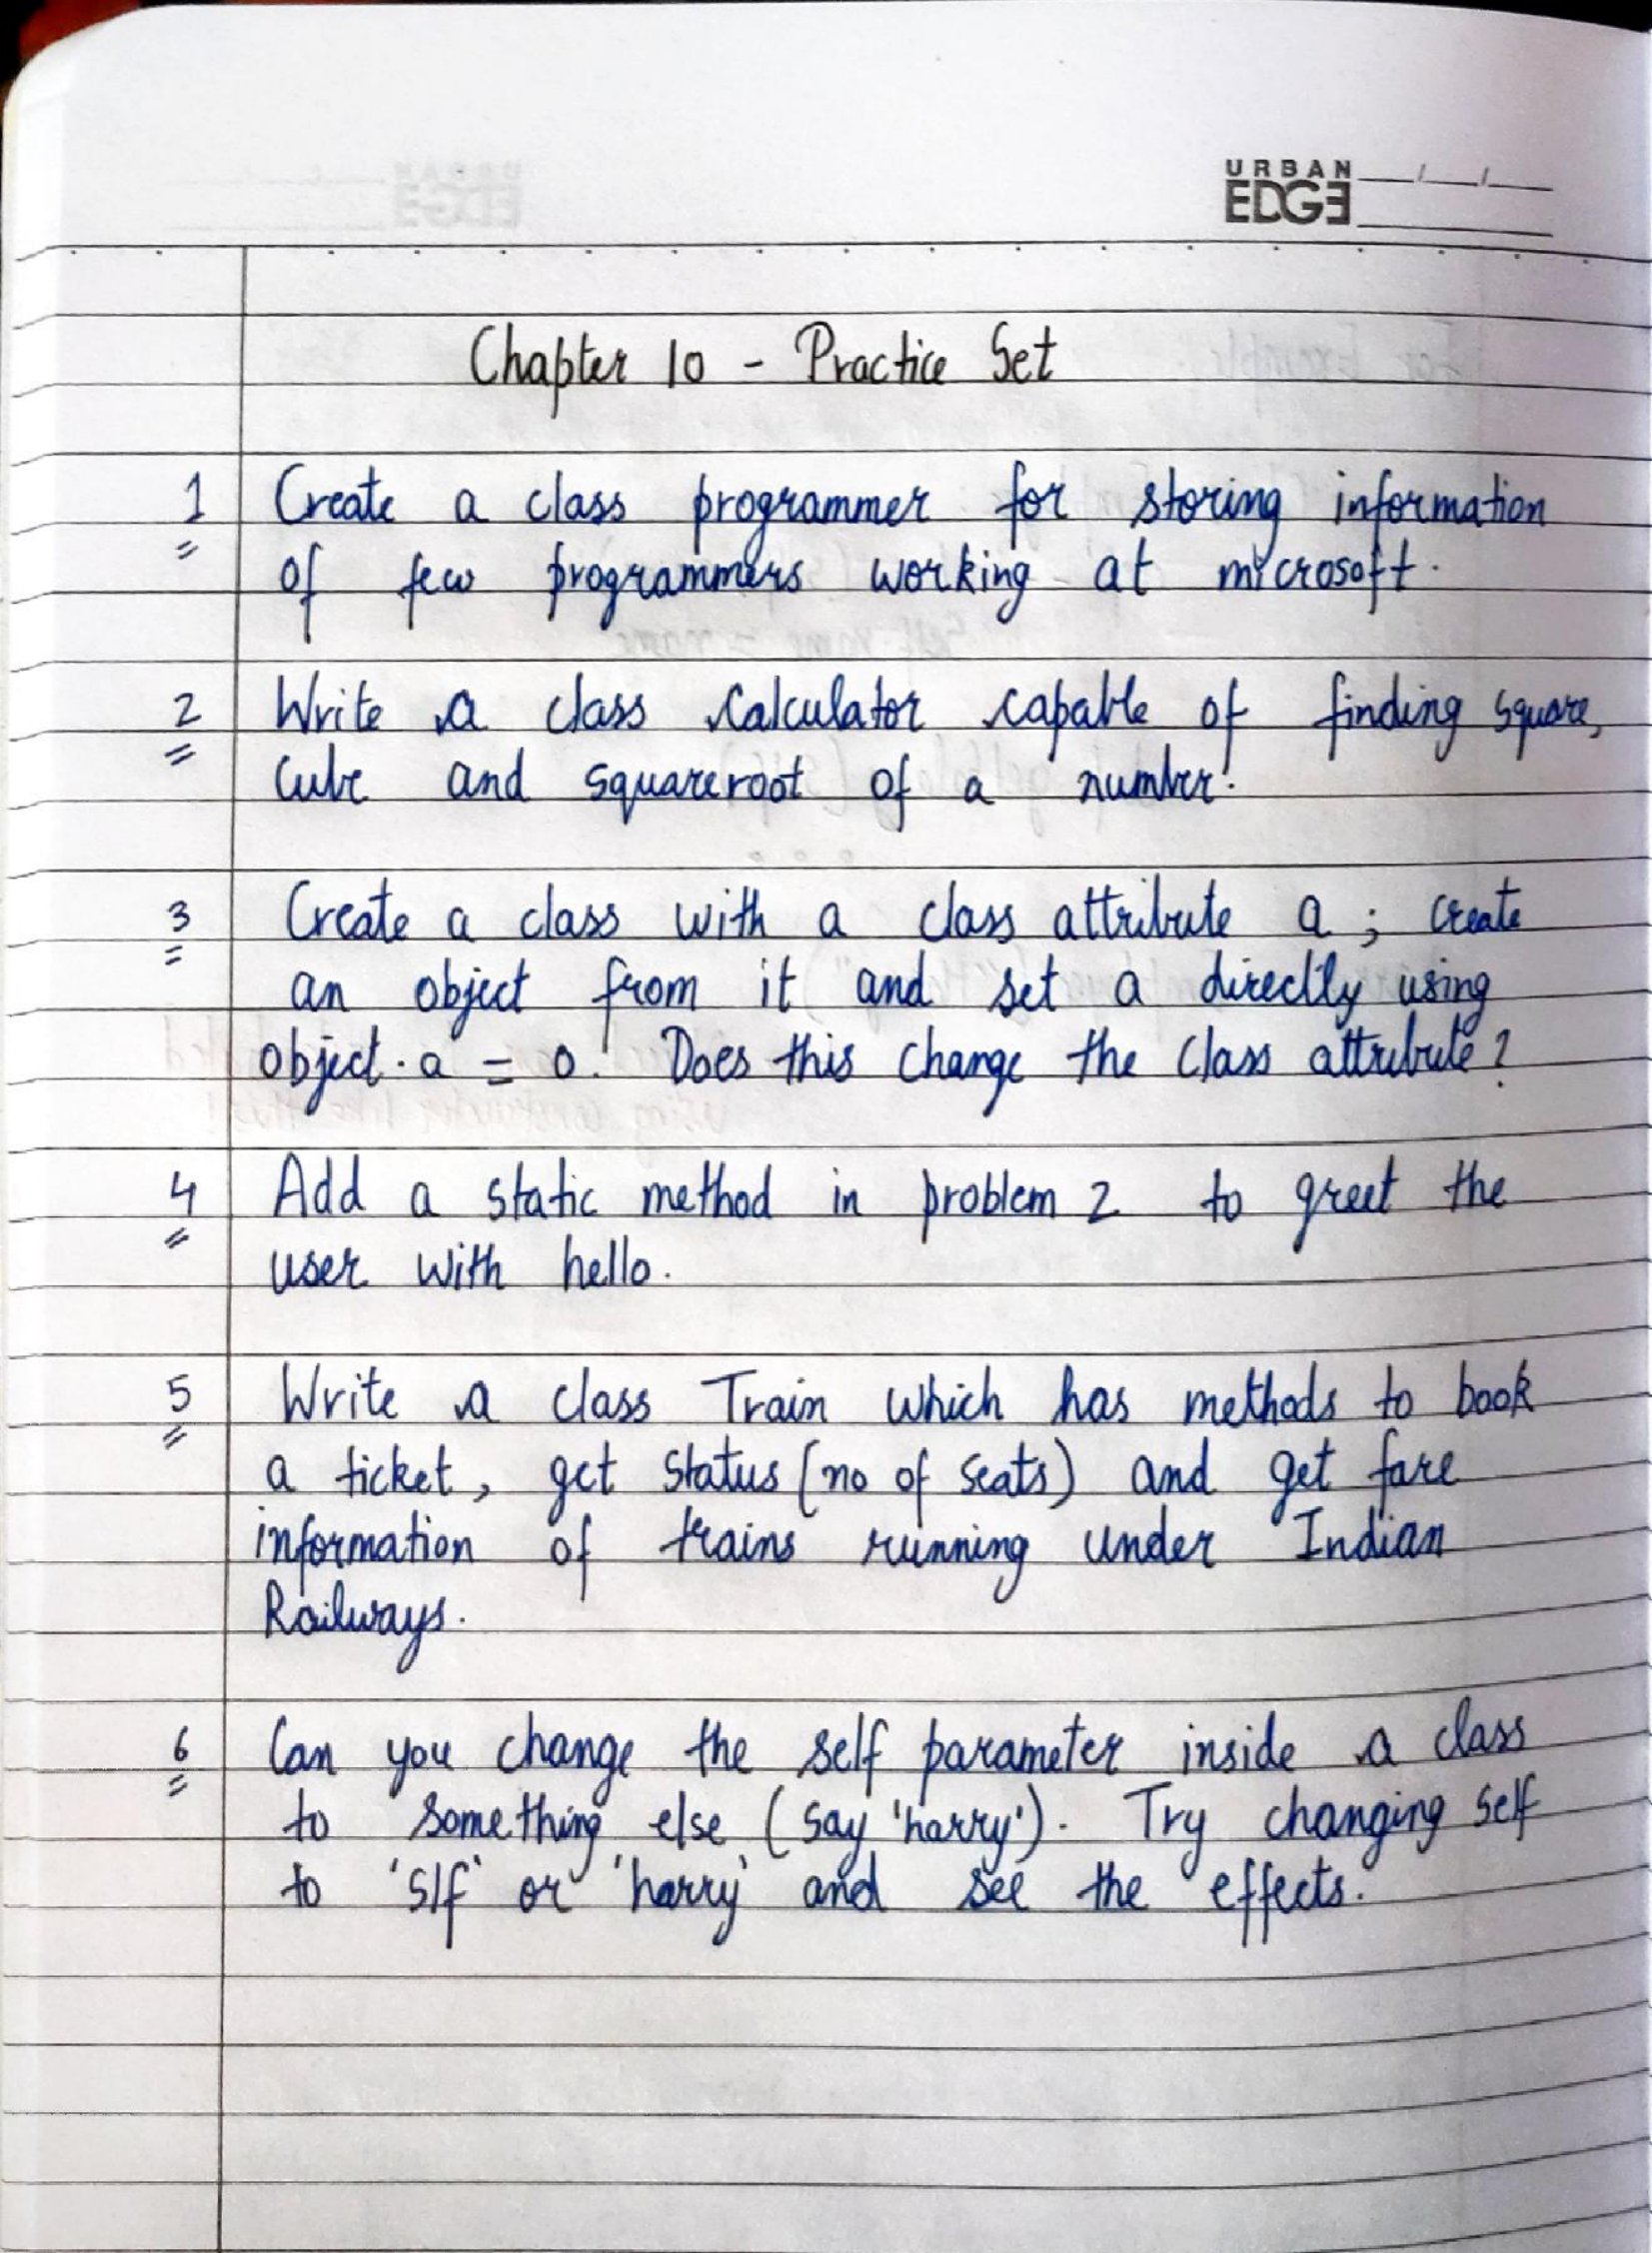 URBAN
EDGE
Chapter 10 - Practice Set
1 Create a class programmer for storing information
of few programmers working at microsoft.
2 Write a class Calculator capable of finding square,
cube and squareroot of a number.
3 Create a class with a class attribute a; create
an object from it and set a directly using
object.a = 0. Does this change the class attribute?
4 Add a static method in problem 2 to greet the
user with hello.
5 Write a class Train which has methods to book
a ticket, get status (no of seats) and get fare
information of trains running under Indian
Railways.
6 Can you change the self parameter inside a class
to something else (say 'harry'). Try changing self
to 'slf' or 'harry' and see the effects.